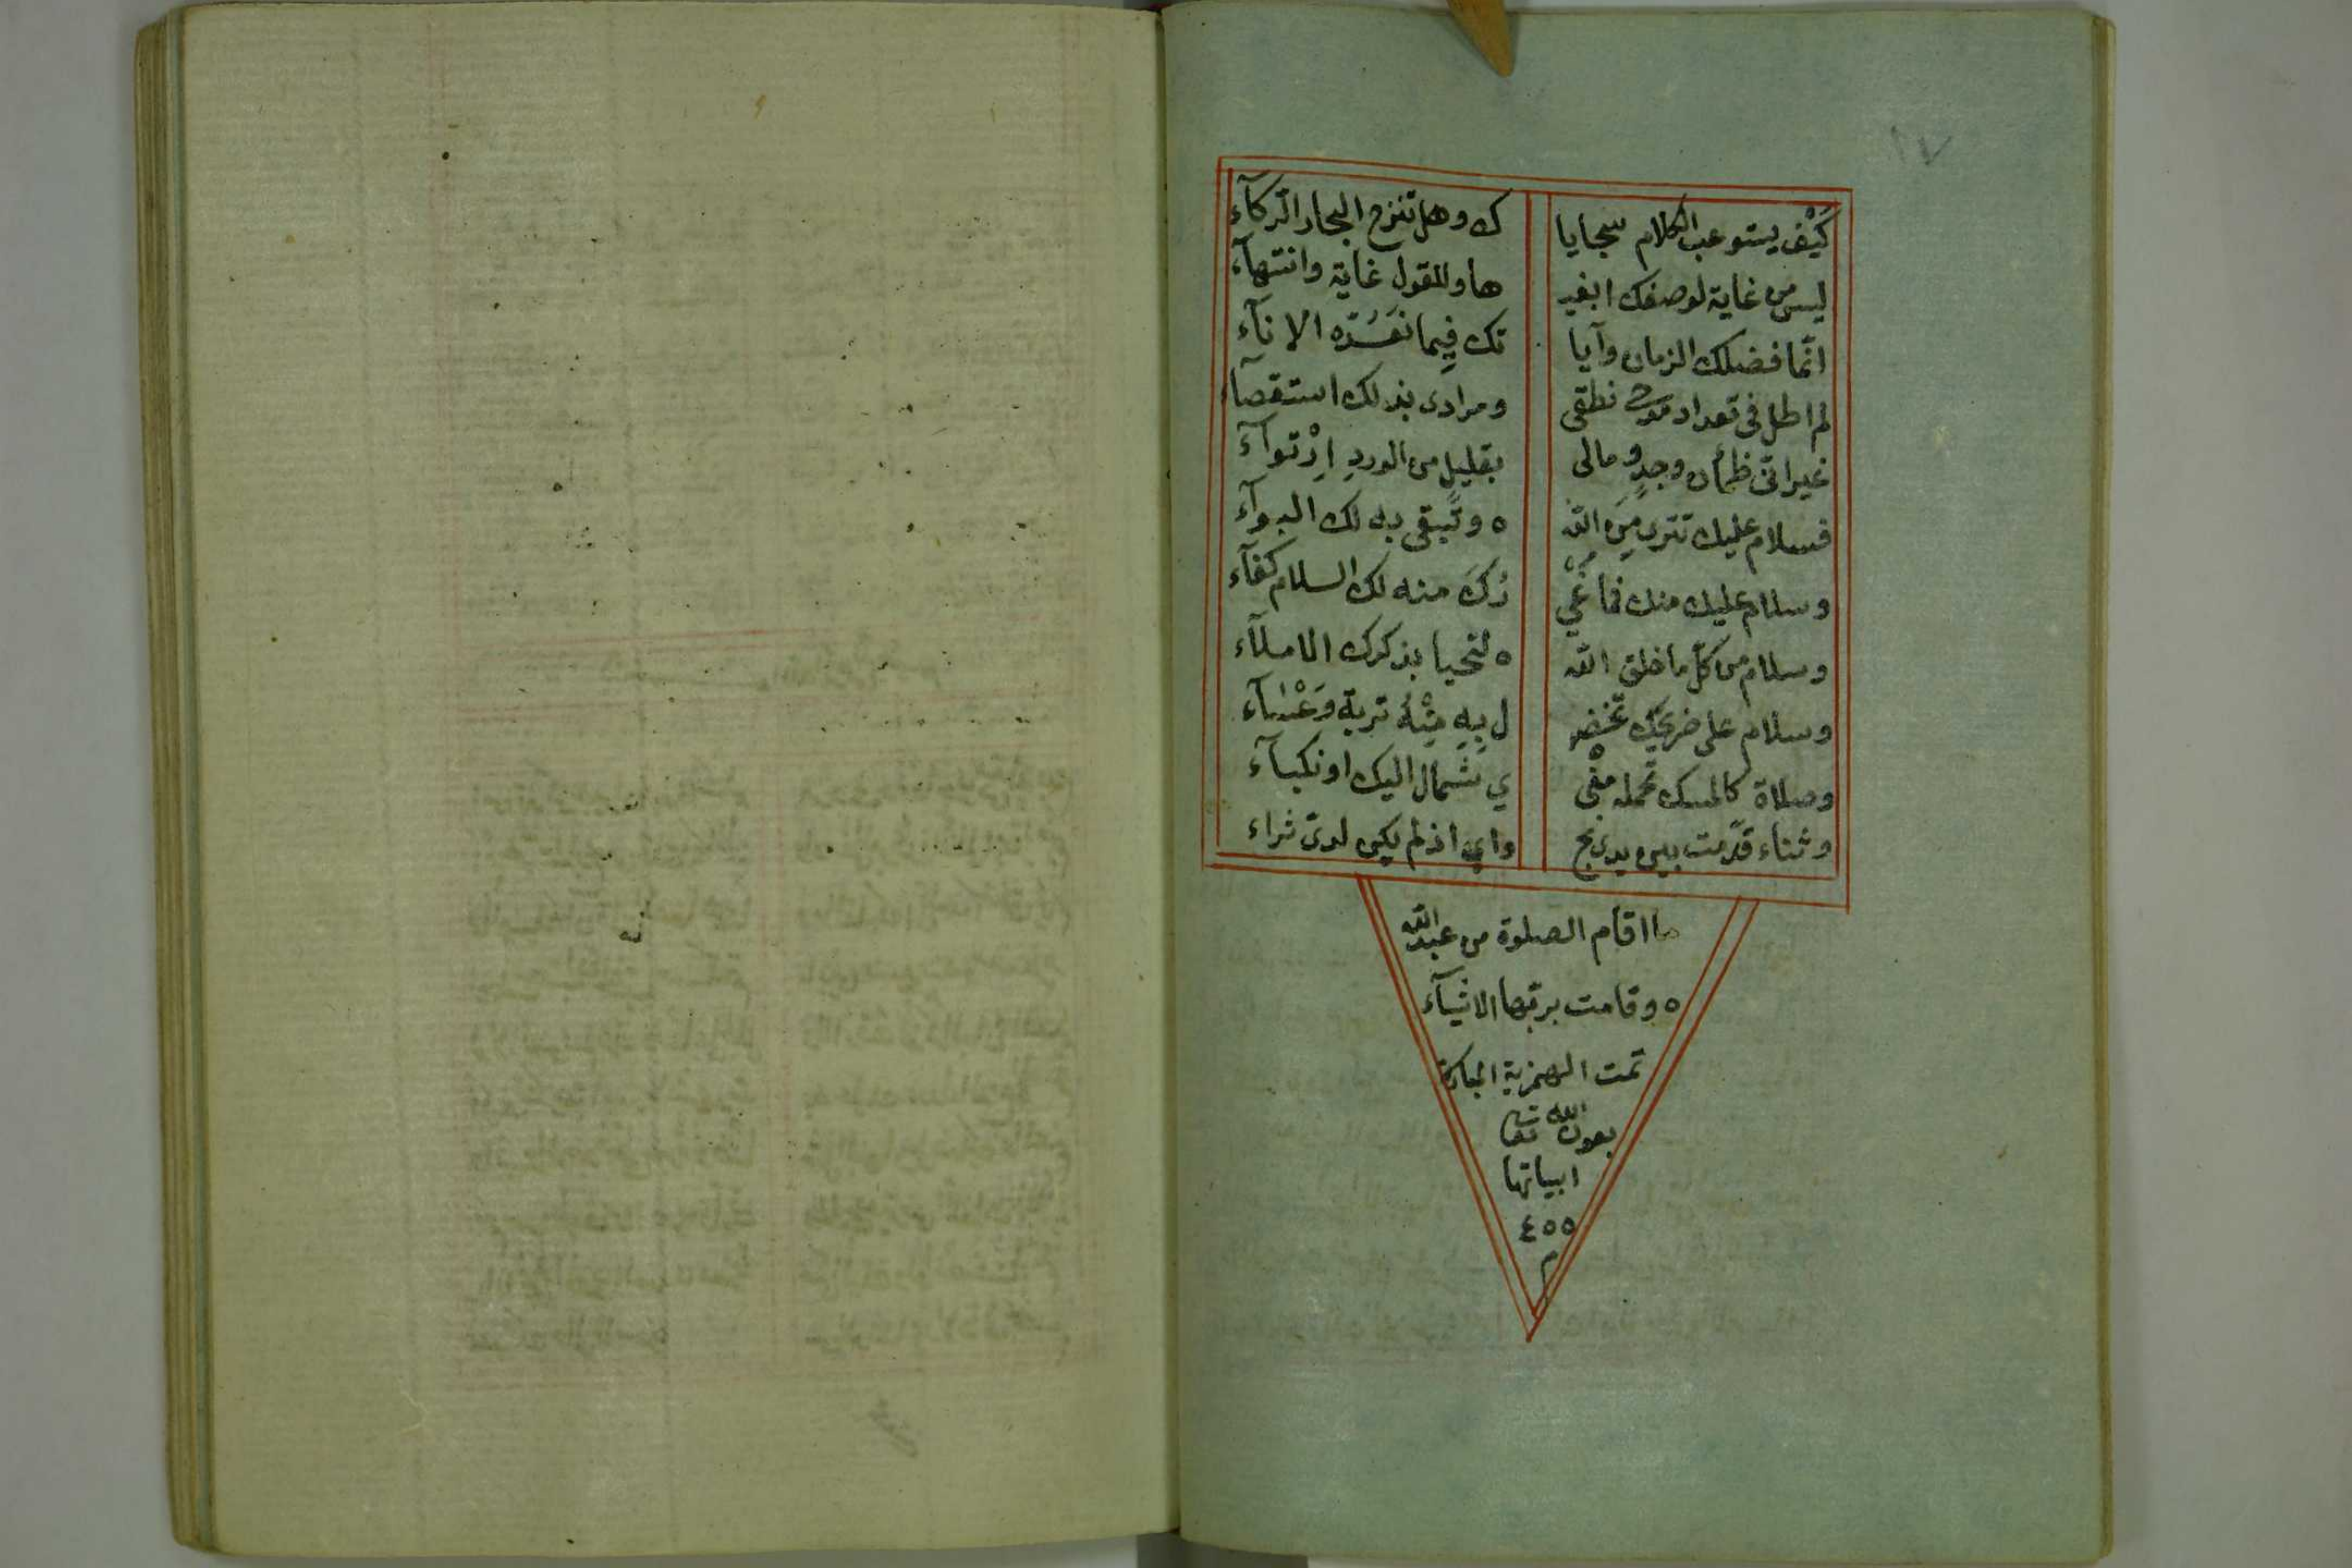 ١٧
كَيْف يستوعب الكلام سجايا ك وهل تنزح البحار الركآء
ليس من غاية لوصفك ابغيـ ها وللقول غاية وانتهآء
انّما فضلك الزمان وآيا تك فِيما نَعُدّه الانآء
لم اطل في تعداد مدح نطقى ومرادى بذلك استقصآء
غير انّى ظمأن وجدٍ ومالى بقليل من الورد اِرْتوآء
فسلام عليك تترى مِنَ اللّه ه وتَبقى به لك البوآء
وسلام عليك منك فما غَيْـ رُكَ منه لك السلام كفآء
وسلام من كلّ ما خلق اللّه ه لتحيا بذكرك الاملآء
وسلام على ضريحك تخضـ ل بِهِ مِنْهُ تربة وَعْسَآء
وصلاة كالمسك تحمله مِنّـ ي شَمال اليك او نكبآء
وثناء قدّمت بين يدى نجـ واي اذ لم يكن لدىّ ثراء
ما اقام الصلوة من عبد اللّه
ه وقامت بربّها الاشيآء
تمت الهمزية المباركة
بعون الله تعا
ابياتها
٤٥٥
م